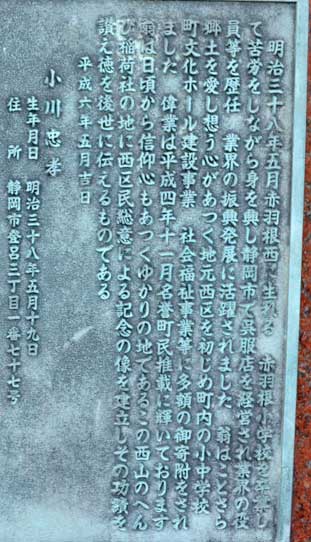 明治三十八年五月赤羽根西に生れる　赤羽根小学校を卒業し
て苦労をしながら身を興し静岡市で呉服店を経営され業界の役
員等を歴任　業界の振興発展に活躍されました　翁はことさら
郷土を愛し想う心があつく地元西区を初じめ町内の小中学校
町文化ホール建設事業　社会福祉事業等に多額の御寄附をされ
ました　偉業は平成四年十一月名誉町民推載に輝いております
翁は日頃から信仰心もあつくゆかりの地であるこの西山のへん
び稲荷社の地に西区民総意による記念の像を建立しその功績を
讃え徳を後世に伝えるものである
平成六年五月吉日
小川忠孝
生年月日　明治三十八年五月十九日
住所　静岡市登呂三丁目一番七十七号